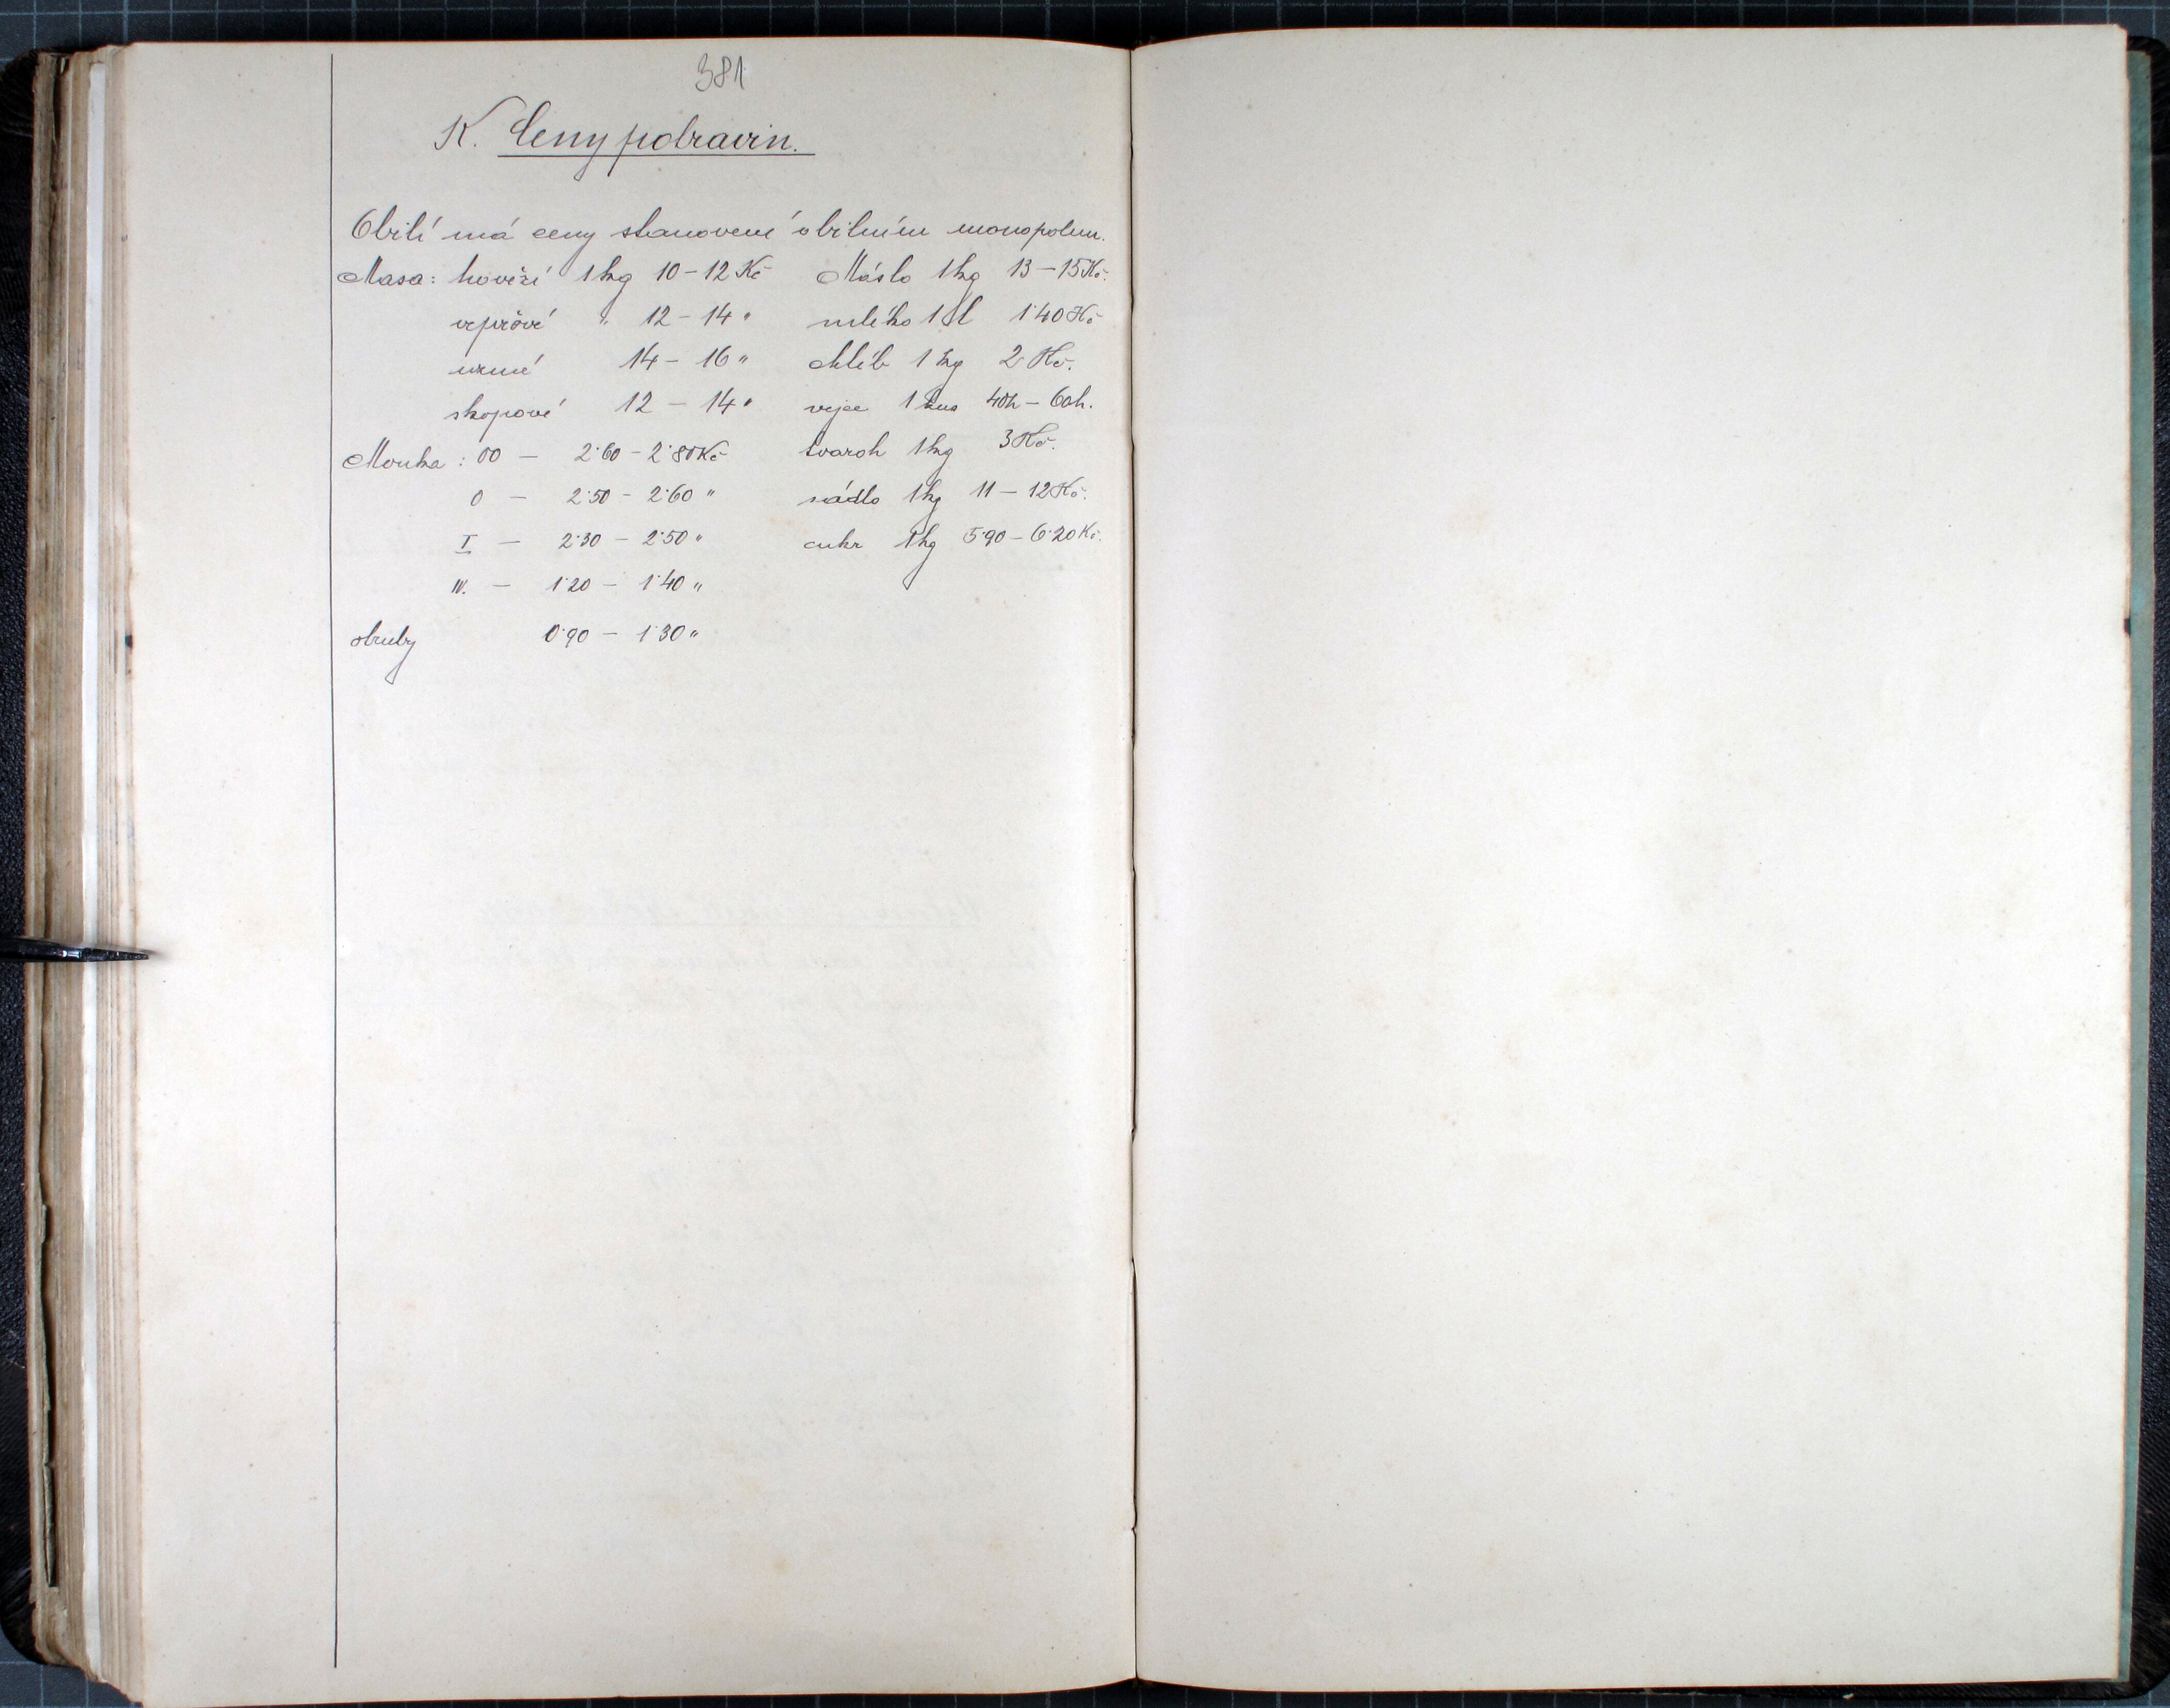 381
K. Ceny potravin.
Obilí má ceny stanovené obilním monopolem.
Masa: hovězí 1 kg 10 - 12 Kč Máslo 1 kg 13 - 15 Kč.
vepřové " 12 - 14 " mléko 1 l 1·40 Kč
uzené 14 - 16 " chléb 1 kg 2 Kč.
skopové 12 - 14 " vejce 1 kus 40h - 60h.
Mouka: 00 - 2·60 - 2·80 Kč tvaroh 1 kg 3 Kč.
0 - 2·50 - 2·60 " sádlo 1 kg 11 - 12 Kč.
I - 2·30 - 2·50 " cukr 1 kg 5·90 - 6·20 Kč.
IV. - 1·20 - 1·40 "
otruby 0·90 - 1·30 "